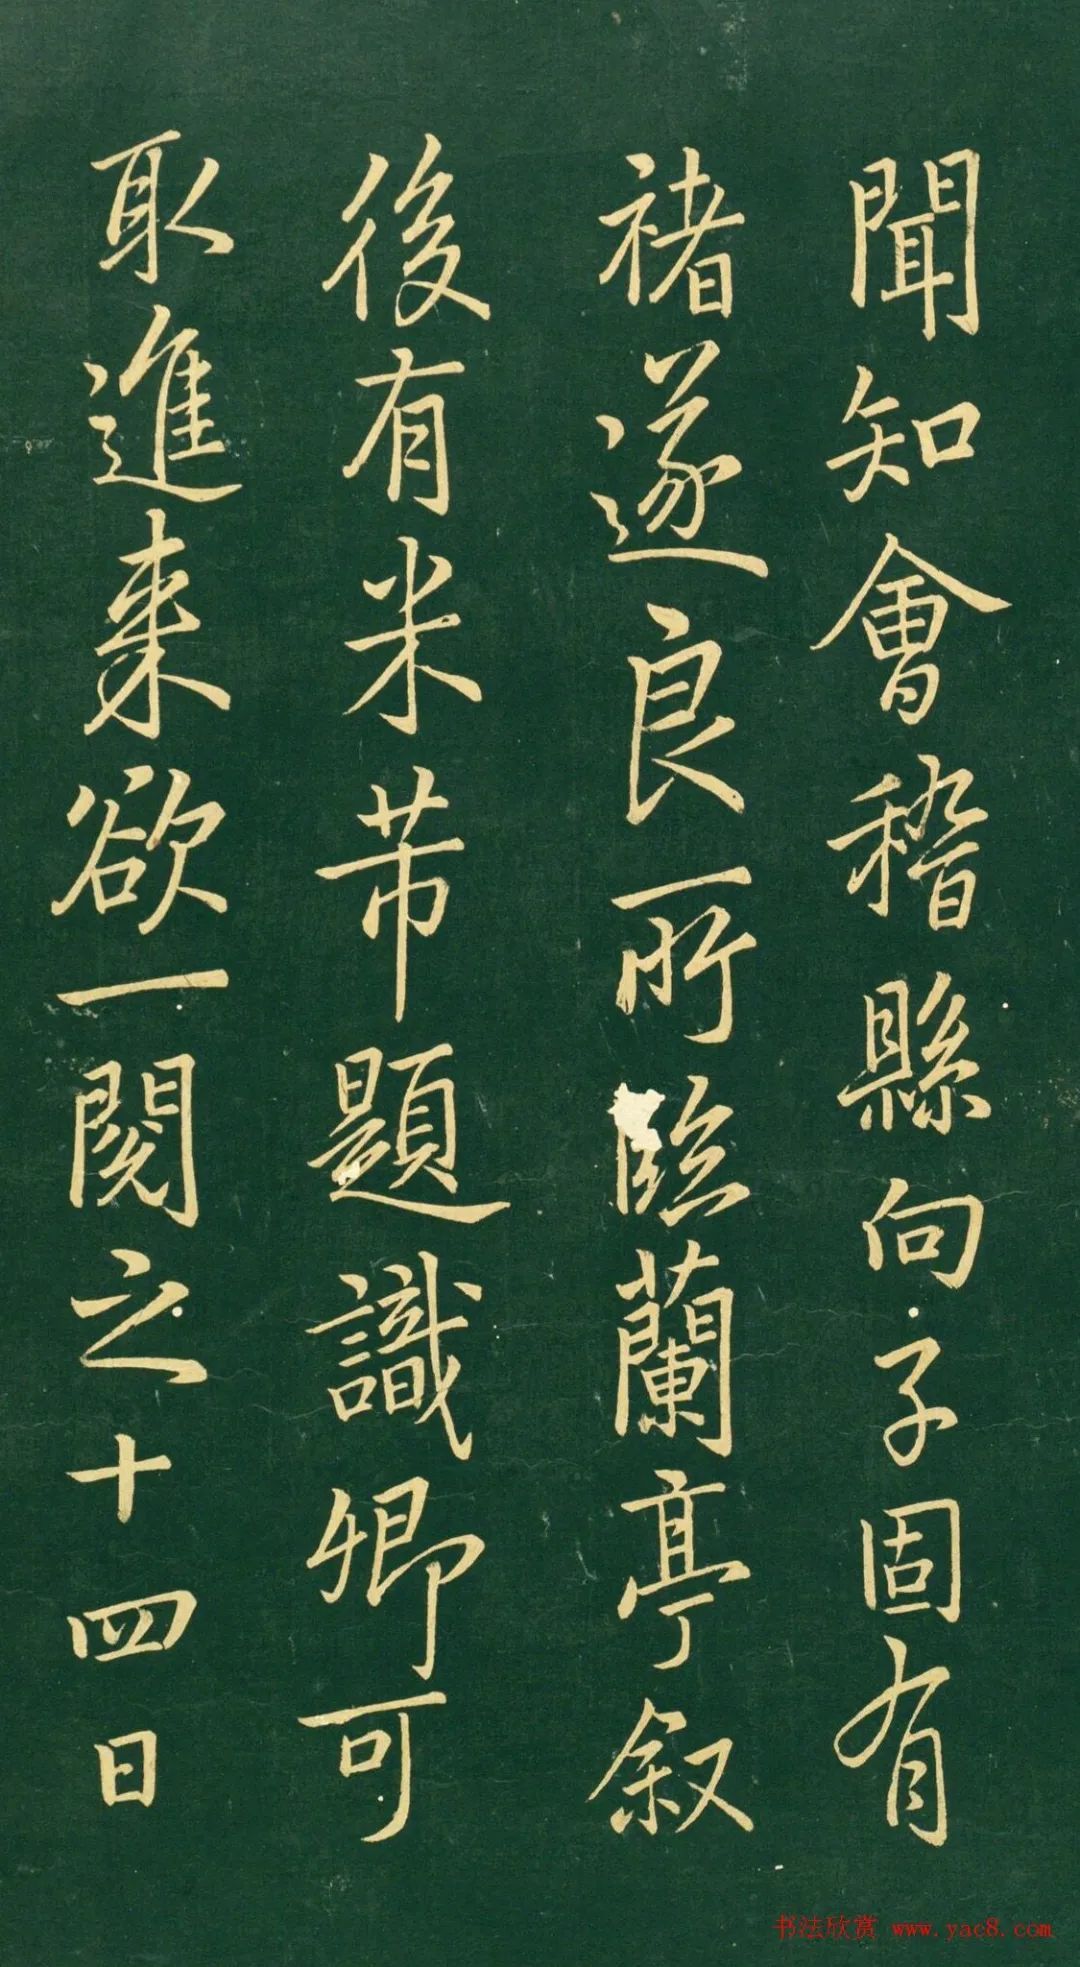 聞知會稽縣向子固有
褚遂良所臨蘭亭叙
後有米芾題識卿可
取進來欲一閱之十四日
书法欣赏 www.yac8.com